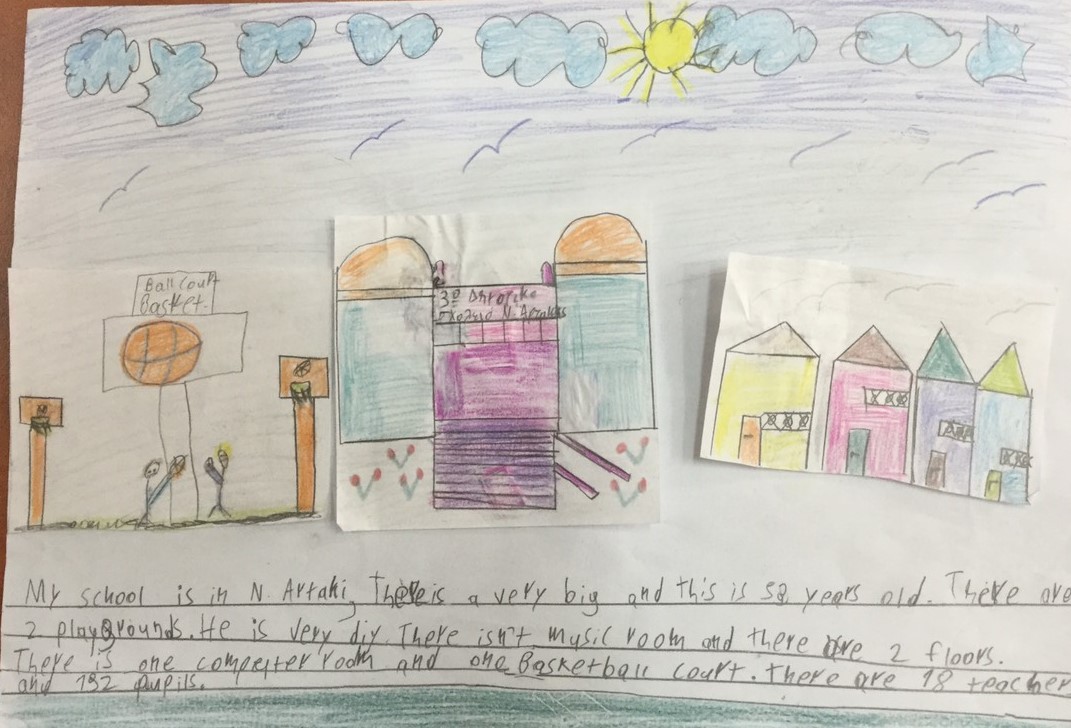 Ball Court
Basket.
3º Δημοτικο
Σχολειο Ν. Αρτακης
My school is in N. Artaki, There is a very big and this is 52 years old. There are
2 playgrounds. He is very diy. There isn't music room and there are 2 floors.
There is one computer room and one Basketball court. There are 18 teacher
and 132 pupils.